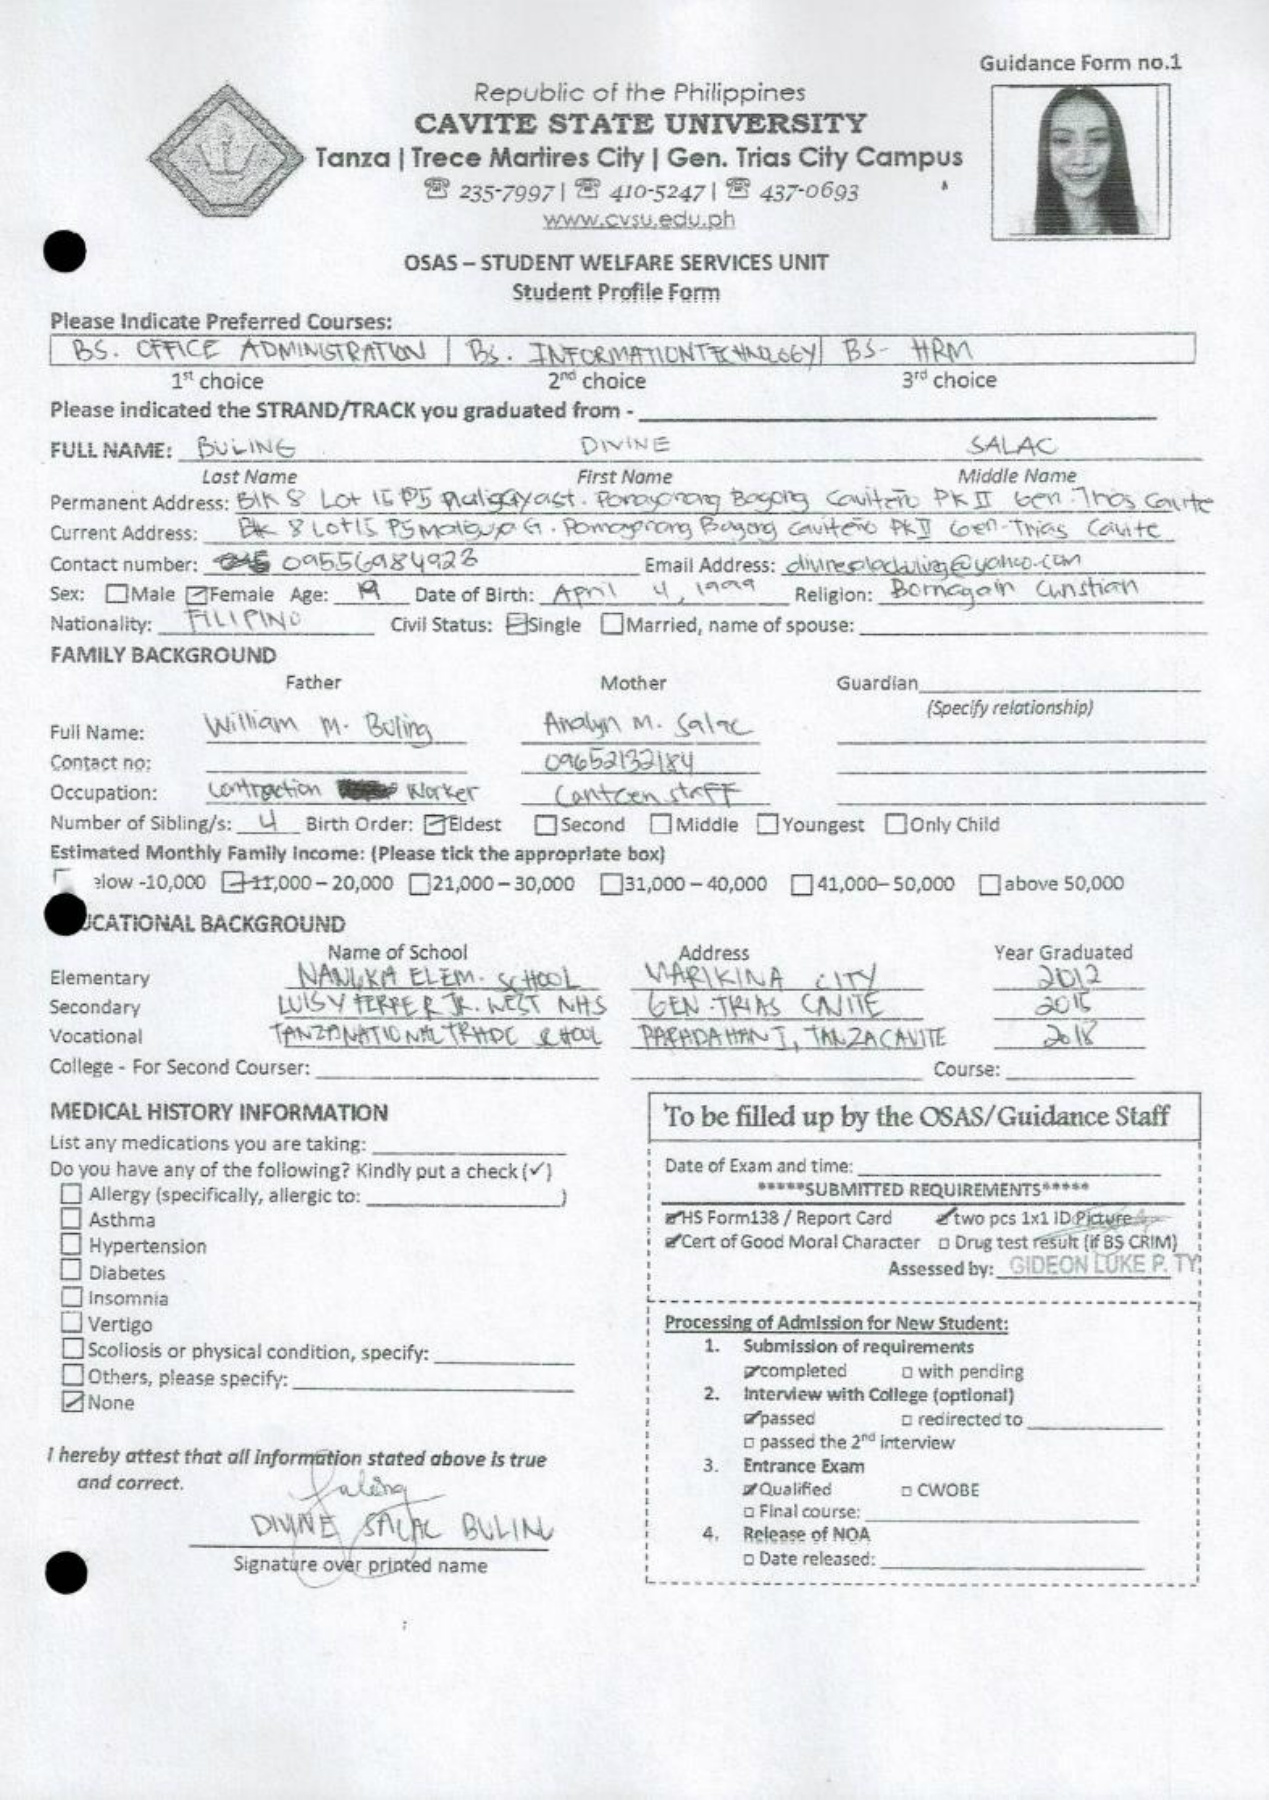 Guidance Form no.1
Republic of the Philippines
CAVITE STATE UNIVERSITY
Tanza | Trece Martires City | Gen. Trias City Campus
☎ 235-7997 | ☎ 410-5247 | ☎ 437-0693
www.cvsu.edu.ph
OSAS – STUDENT WELFARE SERVICES UNIT
Student Profile Form
Please Indicate Preferred Courses:
BS. OFFICE ADMINISTRATION | BS. INFORMATION TECHNOLOGY | BS- HRM
1st choice 2nd choice 3rd choice
Please indicated the STRAND/TRACK you graduated from -
FULL NAME: BULING DIVINE SALAC
Last Name First Name Middle Name
Permanent Address: Blk 8 Lot 15 P5 Bagong Caviteño PK II Gen. Trias Cavite
Current Address: Blk 8 Lot 15 P5 Bagong Caviteño PK II Gen-Trias Cavite
Contact number: 09556984923 Email Address: @yahoo.com
Sex: Male Female Age: 19 Date of Birth: April 4, 1999 Religion: Bornagain Cristian
Nationality: FILIPINO Civil Status: Single Married, name of spouse:
FAMILY BACKGROUND
Father Mother Guardian
(Specify relationship)
Full Name: William M. Buling Analyn M. Salac
Contact no: 09652132184
Occupation: Contraction Worker Canteen staff
Number of Sibling/s: 4 Birth Order: Eldest Second Middle Youngest Only Child
Estimated Monthly Family Income: (Please tick the appropriate box)
elow -10,000 11,000 – 20,000 21,000 – 30,000 31,000 – 40,000 41,000– 50,000 above 50,000
UCATIONAL BACKGROUND
Name of School Address Year Graduated
Elementary NANGKA ELEM. SCHOOL MARIKINA CITY 2012
Secondary LUIS Y FERRER JR. WEST NHS GEN. TRIAS CAVITE
Vocational TANZA NATIONAL TRADE SCHOOL PARADAHAN I, TANZA CAVITE 2018
College - For Second Courser: Course:
MEDICAL HISTORY INFORMATION
List any medications you are taking:
Do you have any of the following? Kindly put a check (✓)
Allergy (specifically, allergic to: )
Asthma
Hypertension
Diabetes
Insomnia
Vertigo
Scoliosis or physical condition, specify:
Others, please specify:
None
I hereby attest that all information stated above is true
and correct.
DIVINE SALAC BULING
Signature over printed name
To be filled up by the OSAS/Guidance Staff
Date of Exam and time:
*****SUBMITTED REQUIREMENTS*****
HS Form138 / Report Card two pcs 1x1 ID Picture
Cert of Good Moral Character Drug test result (if BS CRIM)
Assessed by: GIDEON LUKE P. TY
Processing of Admission for New Student:
1. Submission of requirements
completed with pending
2. Interview with College (optional)
passed redirected to
passed the 2nd interview
3. Entrance Exam
Qualified CWOBE
Final course:
4. Release of NOA
Date released: